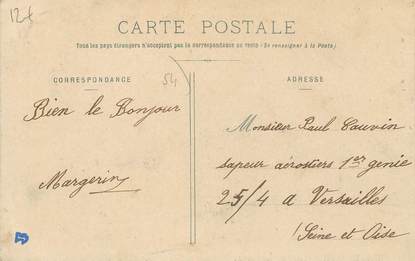 12f
CARTE POSTALE
Tous les pays étrangers n'acceptent pas la correspondance au recto (Se renseigner à la Poste)
CORRESPONDANCE
54
ADRESSE
Bien le Bonjour
Margerin
Monsieur Paul Cauvin
sapeur aérostiers 1er genie
25/4 a Versailles
Seine et Oise